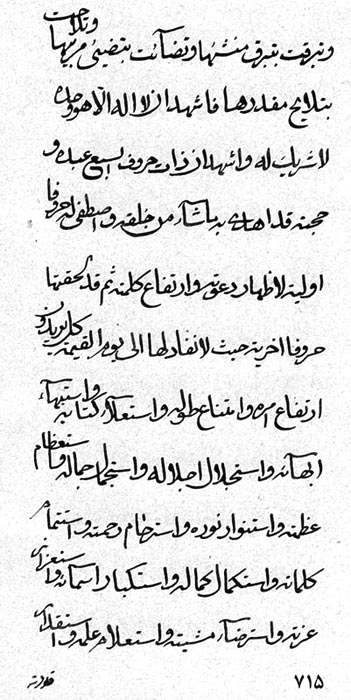 وتبرقت بتبرق منشئها وتضائت بتضيئ مربيها وتلاحت
بتلايح مقدرها فاشهد ان لا اله الا هو وحده
لا شريك له واشهد ان ذات حروف السبع عبده و
حجته قد اهدى به ماشاء من خلقه واصطفى له حروفا
اولية لاظهار دعوته وارتفاع كلمته ثم قد لحقتها
حروفا اخرية حيث لا نفاد لها الى يوم القيمة كل يريدون
ارتفاع امره وامتناع طوله واستعلاء كتابه واستبهاء
ابهائه واستجلال اجلاله واستجمال جماله واستعظام
عظمته واستنوار نوره واسترحام رحمته واستتمام
كلماته واستكمال كماله واستكبار اسمائه واستعزاز
عزته واسترضاء مشيته واستعلام علمه واستقدار
٧١٥
قدرته